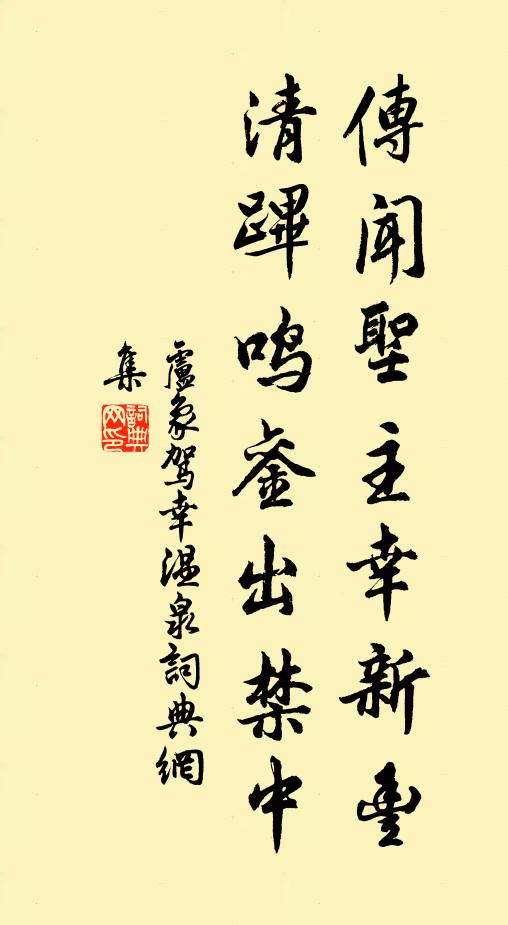 傳聞聖主幸新豐
清蹕鳴鑾出禁中
盧象駕幸溫泉詞典網
集
詞典
网印